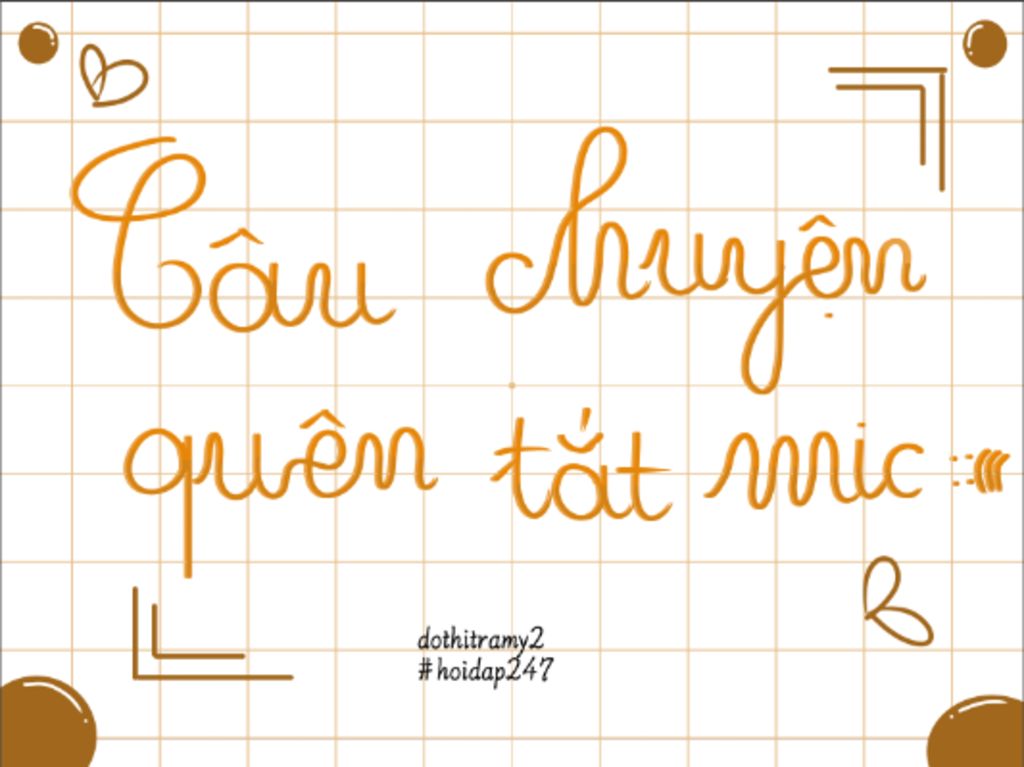 Câu chuyện
quên tắt mic :::)))
dothitramy2
#hoidap247